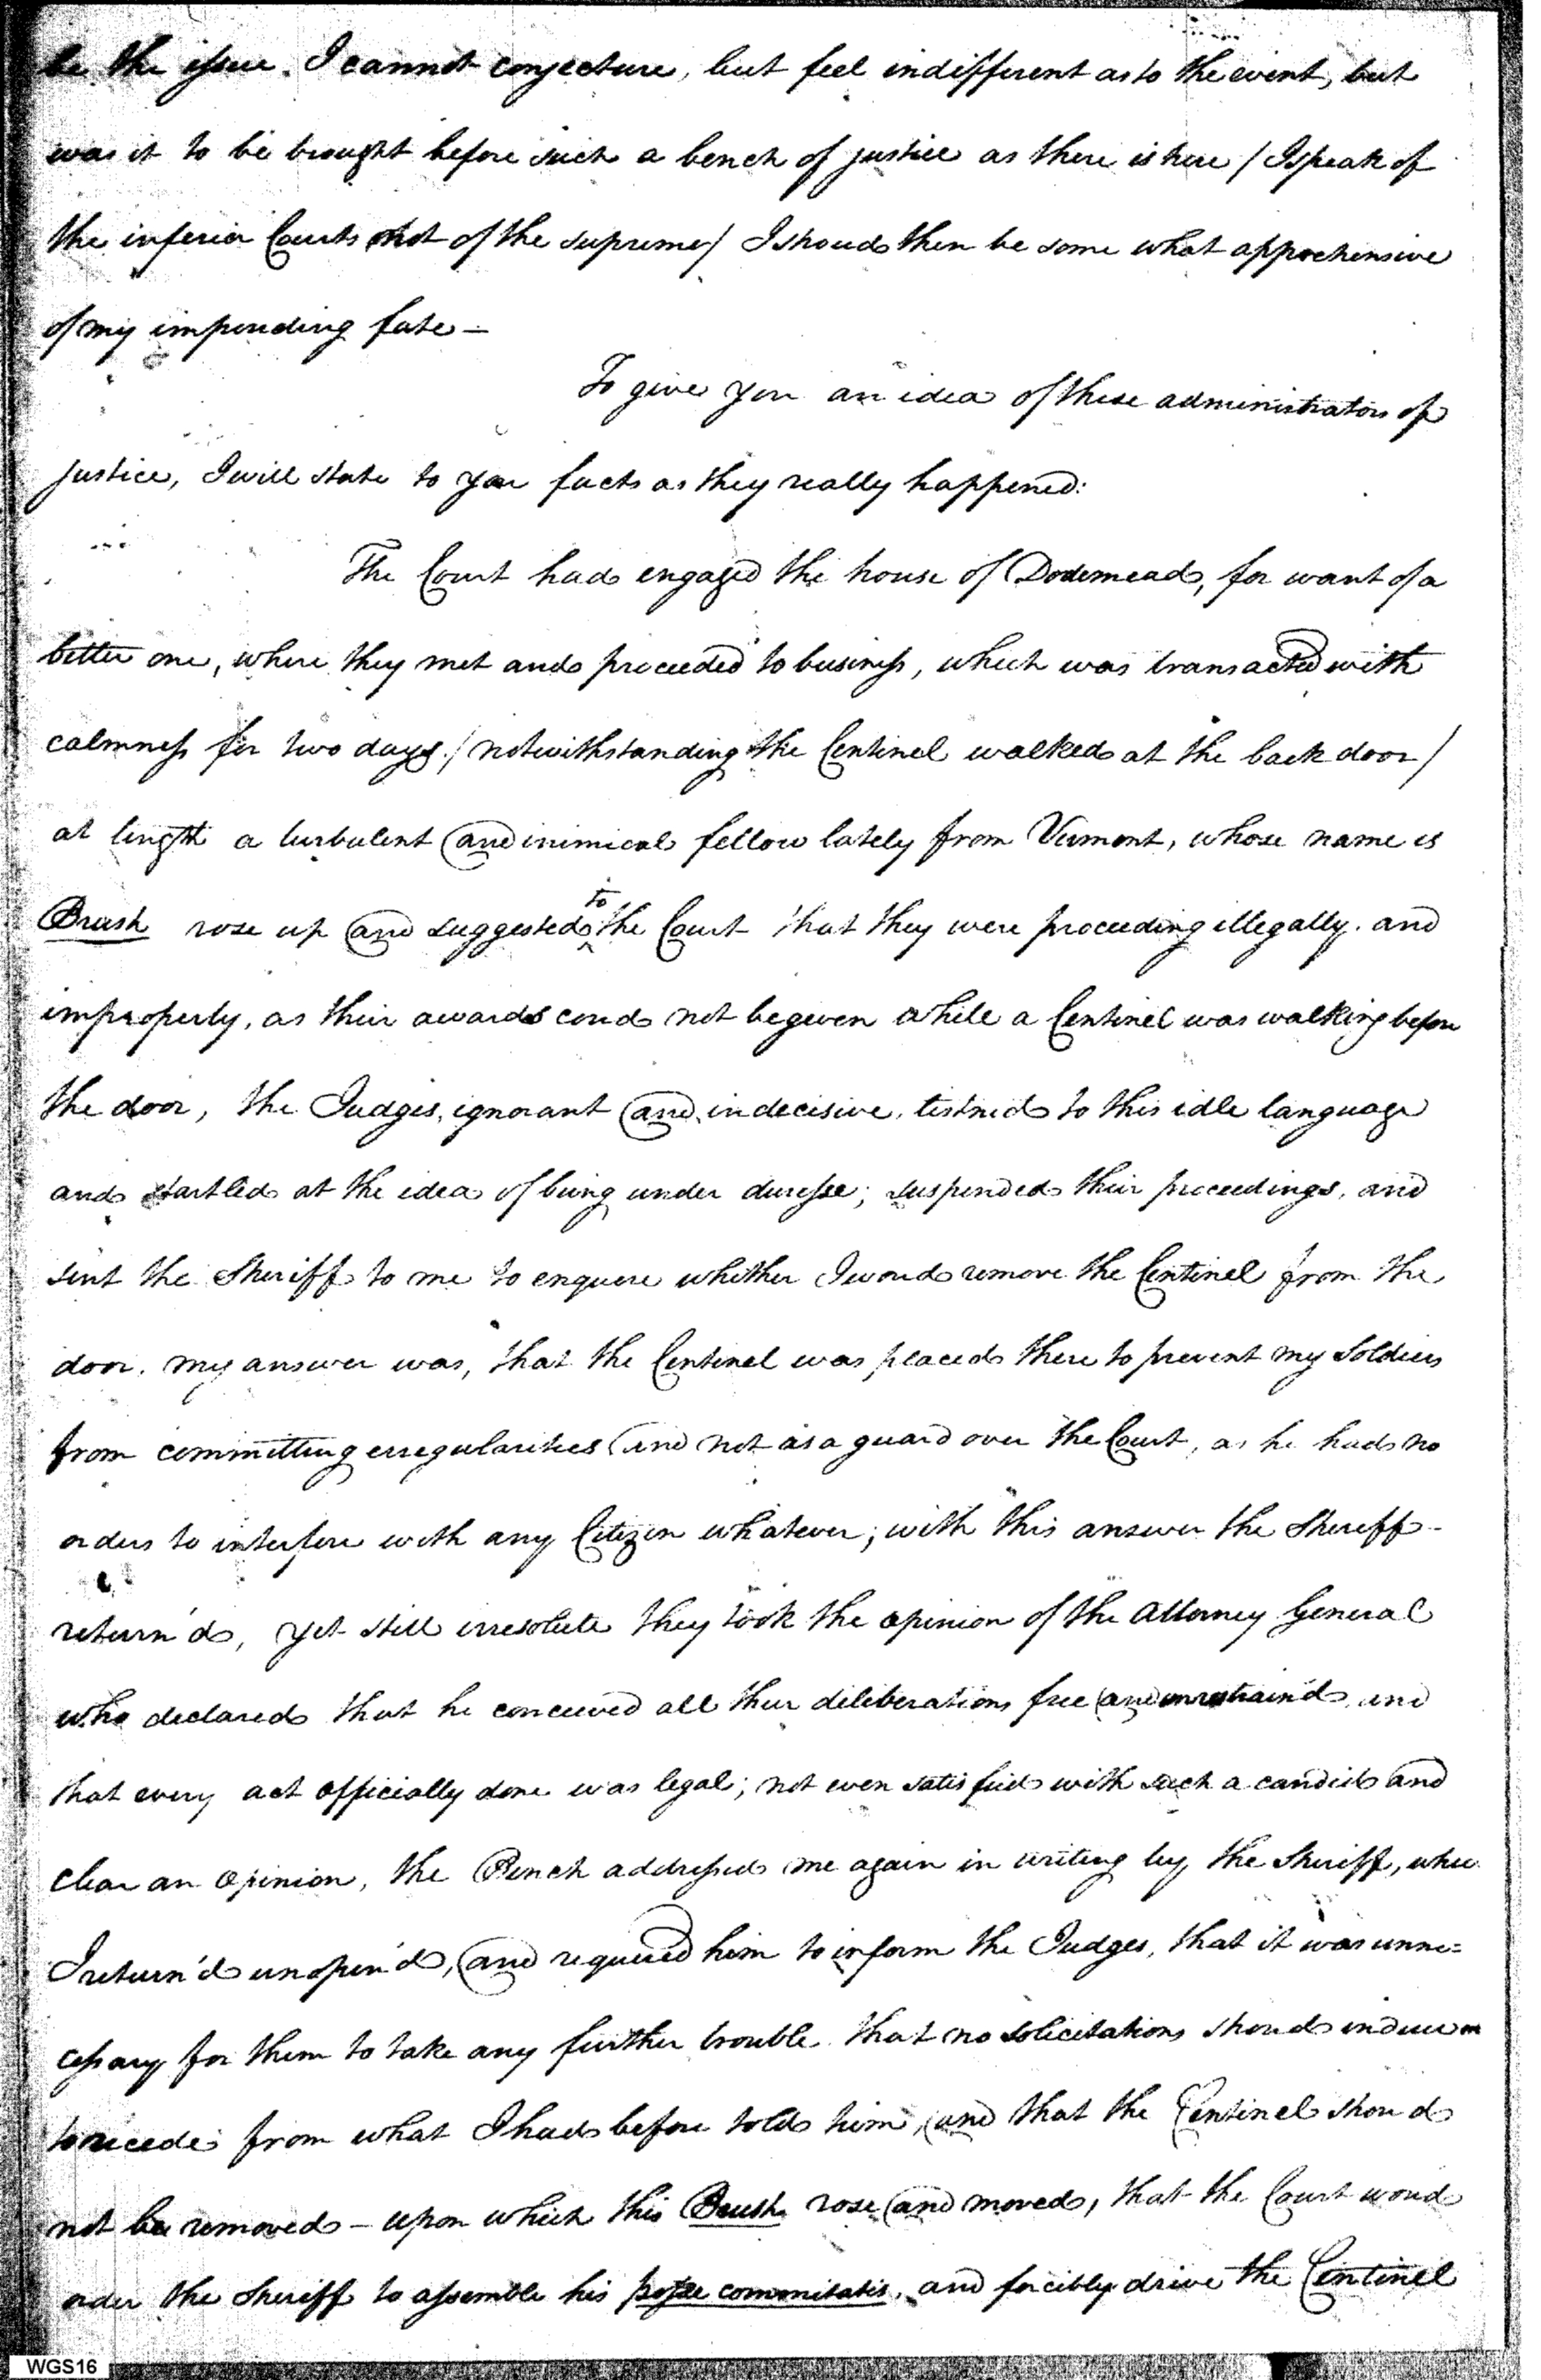 be the issue. I cannot conjecture, but feel indifferent as to the event, but
was it to be brought before such a bench of justice as there is here / I speak of
the inferior Courts not of the supreme / I shoud then be some what apprehensive
of my impending fate —
To give you an idea of these administrators of
justice, I will state to you facts as they really happened:
The Court had engaged the house of Dodemead, for want of a
better one, where they met and proceeded to business, which was transacted with
calmness for two days. / notwithstanding the Centinel walked at the back door /
at length a turbulent and inimical fellow lately from Vermont, whose name is
Brush rose up and suggested to the Court that they were proceeding illegally. and
improperly, as their awards coud not be given while a Centinel was walking before
the door, the Judges, ignorant and indecisive, listned to this idle language
and startled at the idea of being under duresse; suspended their proceedings, and
sent the Sheriff to me to enquire whether I woud remove the Centinel from the
door. my answer was, that the Centinel was placed there to prevent my Soldiers
from committing irregularities and not as a guard over the Court, as he had no
orders to interfere with any Citizen whatever; with this answer the Sheriff -
return'd, yet still irresolute they took the opinion of the Attorney General
who declared that he conceived all their deliberations free and unrestrain'd and
that every act officially done was legal; not even satisfied with such a candid and
clear an opinion, the Bench addressed me again in writing by the Sheriff, whic
I return'd unopen'd, and required him to inform the Judges, that it was unne=
cessary for them to take any further trouble that no solicitations shoud induce m
to recede from what I had before told him, and that the Centinel shoud
not be removed — upon which this Brush rose and moved, that the Court woud
order the Sheriff to assemble his posse commitatis, and forcibly drive the Centinel
WGS16